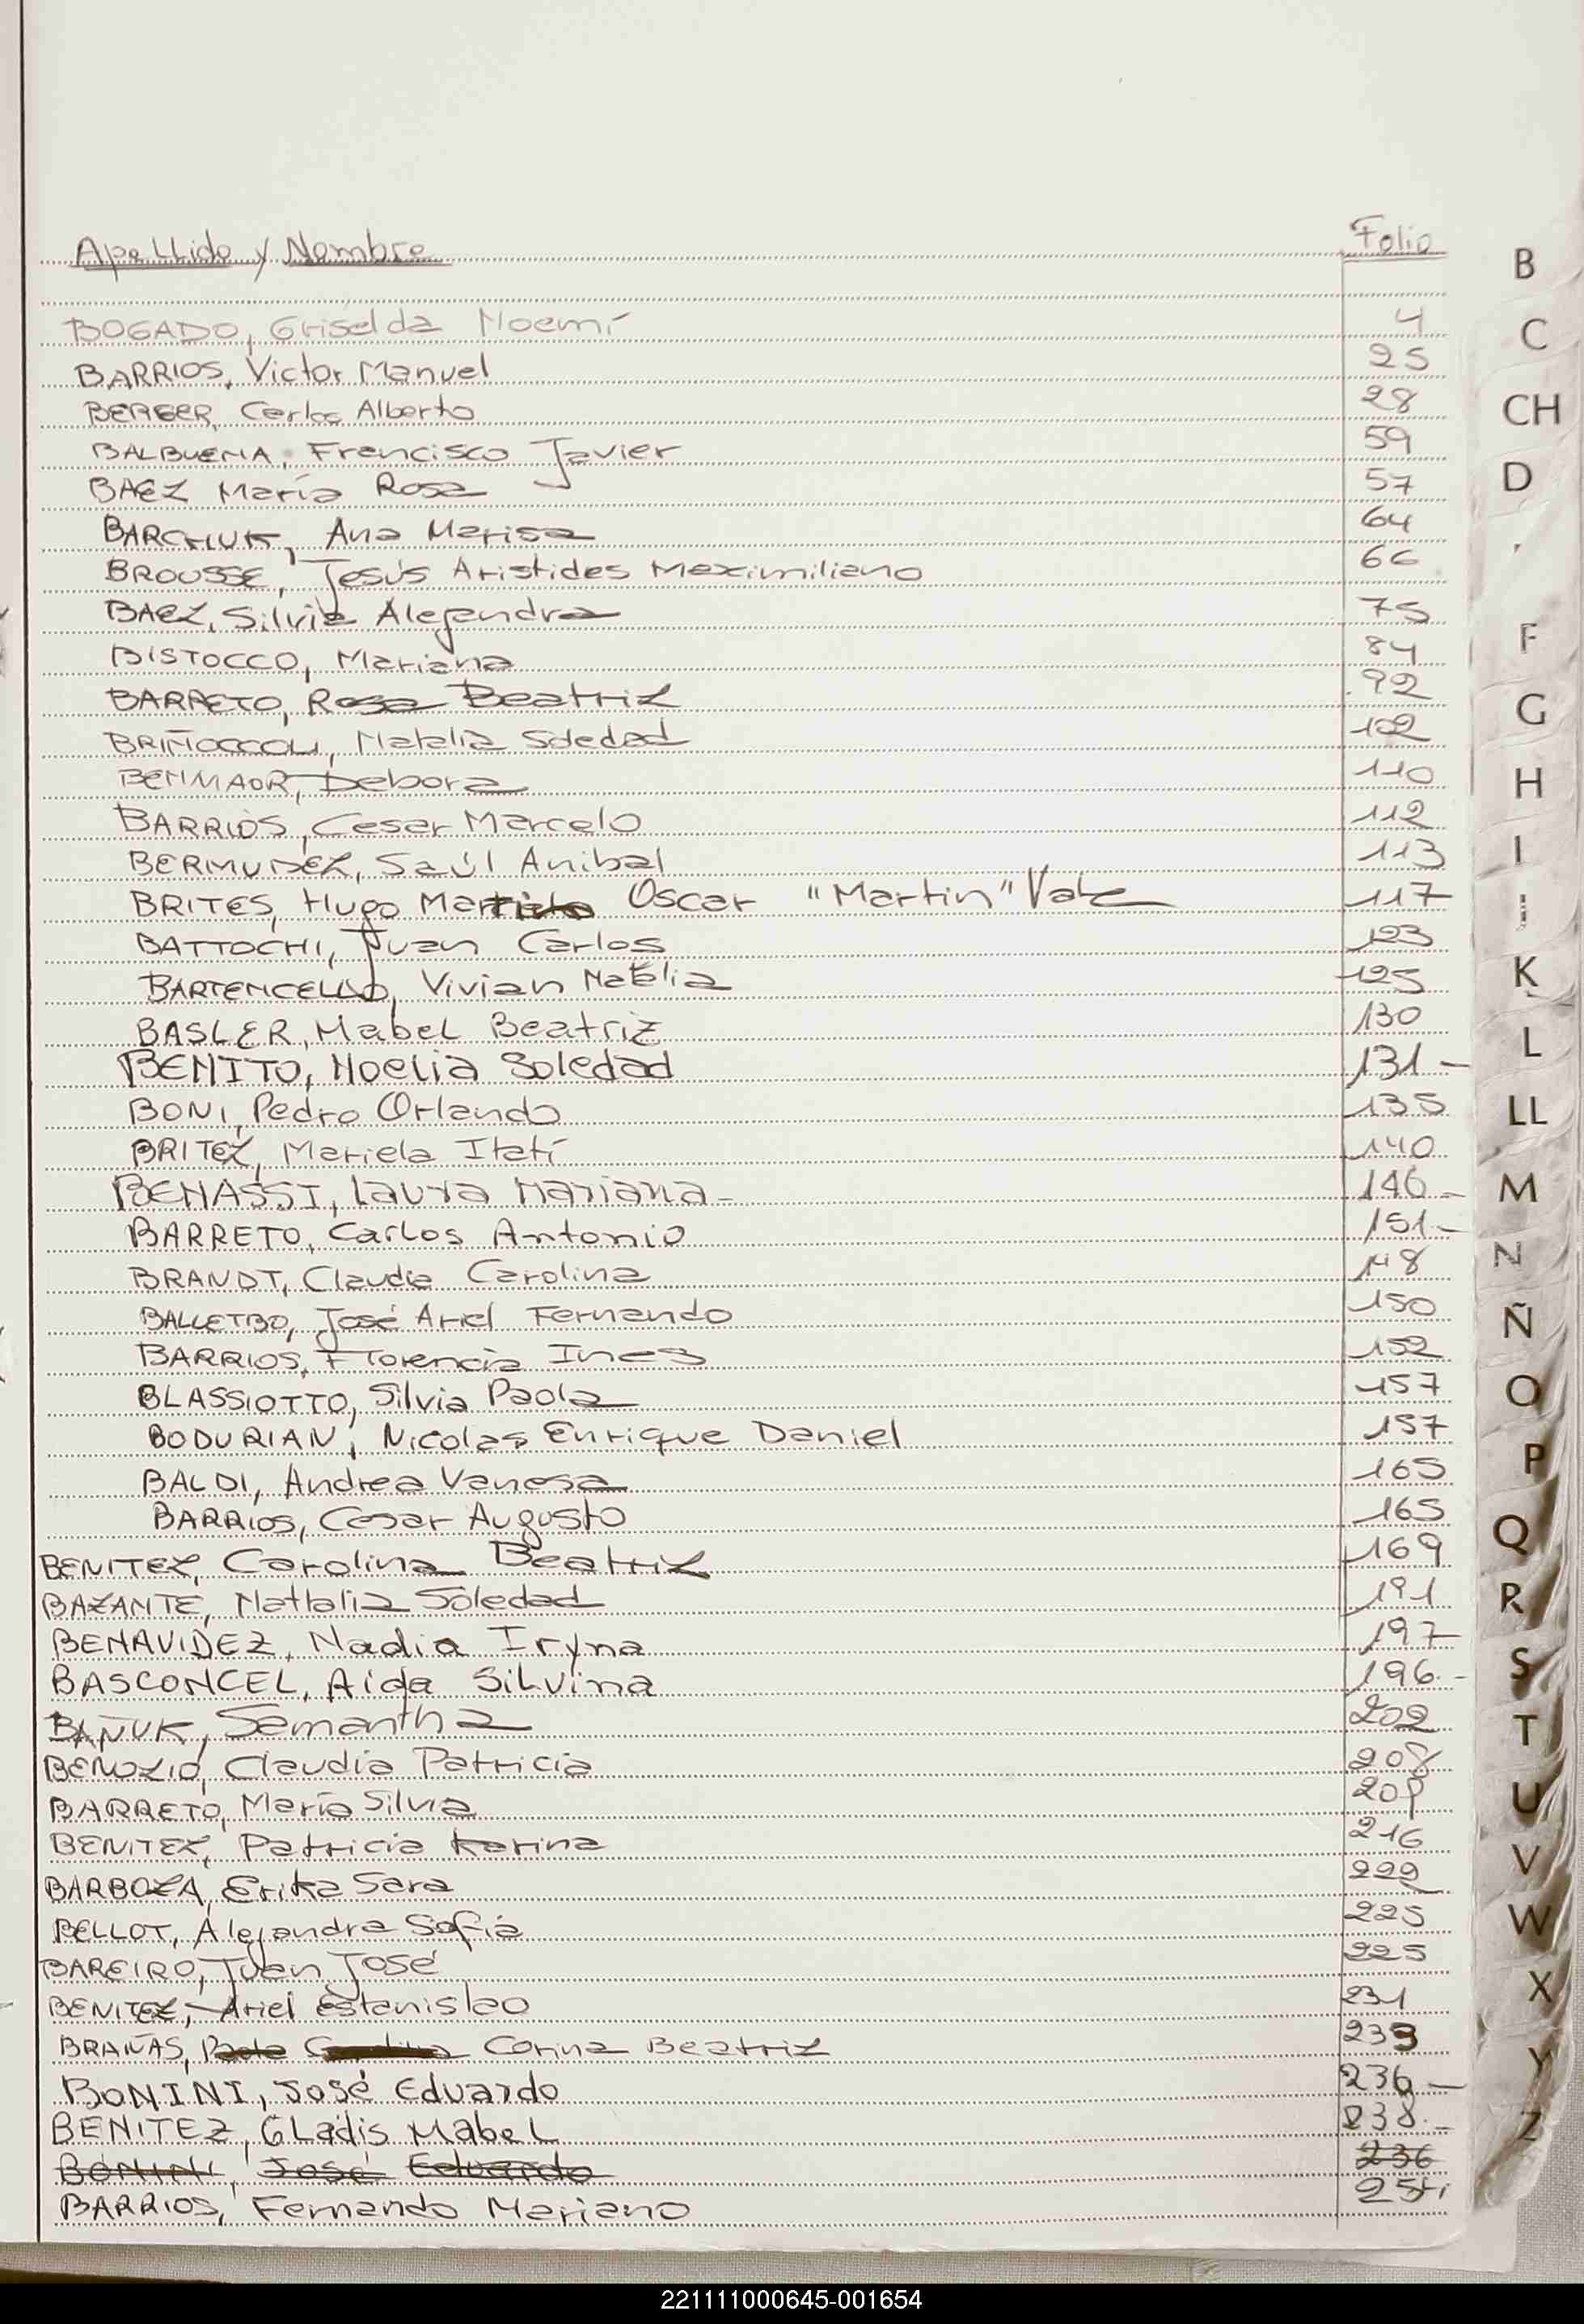 Apellido y Nombre Folio
BOGADO, Griselda Noemí 4
BARRIOS, Victor Manuel 25
BERGER, Carlos Alberto 28
BALBUENA, Francisco Javier 59
BAEZ María Rosa 57
BARCHUK, Ana Marisa 64
BROUSSE, Jesús Aristides Maximiliano 66
BAEZ, Silvia Alejandra 75
BISTOCCO, Mariana 84
BARRETO, Rosa Beatriz 92
BRIÑOCCOLI, Natalia Soledad 102
BENMAOR, Debora 110
BARRIOS, Cesar Marcelo 112
BERMUDEZ, Saúl Anibal 113
BRITES, Hugo Oscar "Martin" Vale 117
BATTOCHI, Juan Carlos 123
BARTENCELLO, Vivian Natalia 125
BASLER, Mabel Beatriz 130
BENITO, Noelia Soledad 131-
BONI, Pedro Orlando 135
BRITEZ, Mariela Itatí 140
BENASSI, Laura Mariana- 146-
BARRETO, Carlos Antonio 151-
BRANDT, Claudia Carolina 148
BALLETBO, José Ariel Fernando 150
BARRIOS, Florencia Ines 152
BLASSIOTTO, Silvia Paola 157
BODURIAN, Nicolas Enrique Daniel 157
BALDI, Andrea Vanesa 165
BARRIOS, Cesar Augusto 165
BENITEZ, Carolina Beatriz 169
BAZANTE, Nathalia Soledad 191
BENAVIDEZ, Nadia Iryna 197
BASCONCEL, Aida Silvina 196.-
BAÑUK, Samantha 202
BENOZIO, Claudia Patricia 208
BARRETO, María Silvia 209
BENITEZ, Patricia Karina 216
BARBOZA, Erika Sara 222
BELLOT, Alejandra Sofía 225
BAREIRO, Juan José 225
BENITEZ, Ariel Estanislao 231
BRAÑAS, Corina Beatriz 233
BONINI, José Eduardo 236-
BENITEZ, Gladis Mabel 238.-
BONINI, José Eduardo 236
BARRIOS, Fernando Mariano 254
B
C
CH
D
F
G
H
I
K
L
LL
M
N
Ñ
O
P
Q
R
S
T
U
V
W
X
Y
Z
221111000645-001654